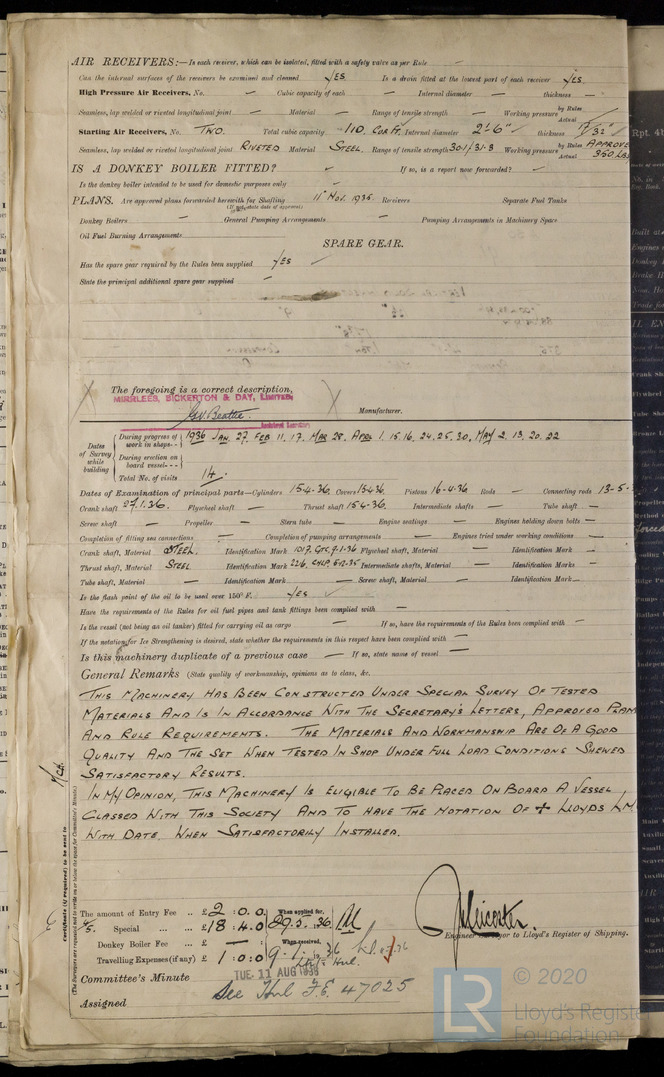 AIR RECEIVERS:— Is each receiver, which can be isolated, fitted with a safety valve as per Rule –
Can the internal surfaces of the receivers be examined and cleaned YES Is a drain fitted at the lowest part of each receiver YES
High Pressure Air Receivers, No. – Cubic capacity of each – Internal diameter – thickness –
Seamless, lap welded or riveted longitudinal joint – Material – Range of tensile strength – Working pressure by Rules Actual
Starting Air Receivers, No. TWO. Total cubic capacity 110. CUB FT. Internal diameter 2'-6" thickness 17/32"
Seamless, lap welded or riveted longitudinal joint RIVETED Material STEEL Range of tensile strength 30.1/31.3 Working pressure by Rules APPROVE Actual 350 LBS
IS A DONKEY BOILER FITTED? – If so, is a report now forwarded? –
Is the donkey boiler intended to be used for domestic purposes only –
PLANS. Are approved plans forwarded herewith for Shafting 11 NOV. 1935. Receivers Separate Fuel Tanks
(If not, state date of approval)
Donkey Boilers – General Pumping Arrangements – Pumping Arrangements in Machinery Space
Oil Fuel Burning Arrangements
SPARE GEAR.
Has the spare gear required by the Rules been supplied YES
State the principal additional spare gear supplied –
The foregoing is a correct description,
MIRRLEES, BICKERTON & DAY, LIMITED,
G.W. Beattie. Manufacturer.
Dates of Survey while building
During progress of work in shops-- 1936 JAN. 27, FEB 11, 17. MAR 28, APRIL 1. 15. 16. 24. 25. 30, MAY 2. 13. 20. 22
During erection on board vessel---
Total No. of visits 14.
Dates of Examination of principal parts—Cylinders 15-4-36. Covers 15-4-36. Pistons 16-4-36 Rods – Connecting rods 13-5-
Crank shaft 27.1.36. Flywheel shaft – Thrust shaft 15.4.36. Intermediate shafts – Tube shaft –
Screw shaft – Propeller – Stern tube – Engine seatings – Engines holding down bolts –
Completion of fitting sea connections – Completion of pumping arrangements – Engines tried under working conditions –
Crank shaft, Material STEEL. Identification Mark Flywheel shaft, Material – Identification Mark –
Thrust shaft, Material STEEL Identification Mark Intermediate shafts, Material – Identification Marks –
Tube shaft, Material – Identification Mark – Screw shaft, Material – Identification Mark –
Is the flash point of the oil to be used over 150° F. YES
Have the requirements of the Rules for oil fuel pipes and tank fittings been complied with –
Is the vessel (not being an oil tanker) fitted for carrying oil as cargo – If so, have the requirements of the Rules been complied with –
If the notation for Ice Strengthening is desired, state whether the requirements in this respect have been complied with –
Is this machinery duplicate of a previous case – If so, state name of vessel –
General Remarks (State quality of workmanship, opinions as to class, &c.
THIS MACHINERY HAS BEEN CONSTRUCTED UNDER SPECIAL SURVEY OF TESTED
MATERIALS AND IS IN ACCORDANCE WITH THE SECRETARY'S LETTERS, APPROVED PLAN
AND RULE REQUIREMENTS. THE MATERIALS AND WORKMANSHIP ARE OF A GOOD
QUALITY AND THE SET WHEN TESTED IN SHOP UNDER FULL LOAD CONDITIONS SHEWED
SATISFACTORY RESULTS.
IN MY OPINION, THIS MACHINERY IS ELIGIBLE TO BE PLACED ON BOARD A VESSEL
CLASSED WITH THIS SOCIETY AND TO HAVE THE NOTATION OF ✠ LLOYDS LM
WITH DATE, WHEN SATISFACTORILY INSTALLED.
Certificate (if required) to be sent to
(The Surveyors are requested not to write on or below the space for Committee's Minute.)
The amount of Entry Fee .. £ 2 : 0. 0. When applied for,
4/5. Special ... £ 18 : 4. 0 29.5.36
Donkey Boiler Fee .. £ – : When received,
Travelling Expenses (if any) £ 1 : 0 : 0
Engineer Surveyor to Lloyd's Register of Shipping.
Committee's Minute TUE. 11 AUG 1936
Assigned See Hul F.E. 47025
© 2020
LR Lloyd's Register
Foundation